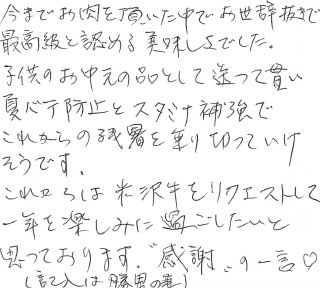 今までお肉を頂いた中でお世辞抜きで
最高級と認める美味しさでした。
子供のお中元の品として送って貰い
夏バテ防止とスタミナ補強で
これからの残暑を乗り切っていけ
そうです。
これからは米沢牛をリクエストして
一年を楽しみに過ごしたいと
思っております。"感謝"の一言♡